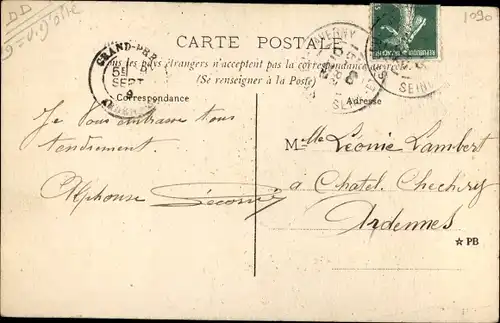 DD
1090
CARTE POSTALE
Tous les pays étrangers n'acceptent pas la correspondance au recto
(Se renseigner à la Poste)
GRAND-PRÉ
5
SEPT
9
ARDENNES
Correspondance
Adresse
Je vous embrasse tous
tendrement.
Alphonse
Mlle Léonie Lambert
a Chatel. Chechery
Ardennes
☆ PB